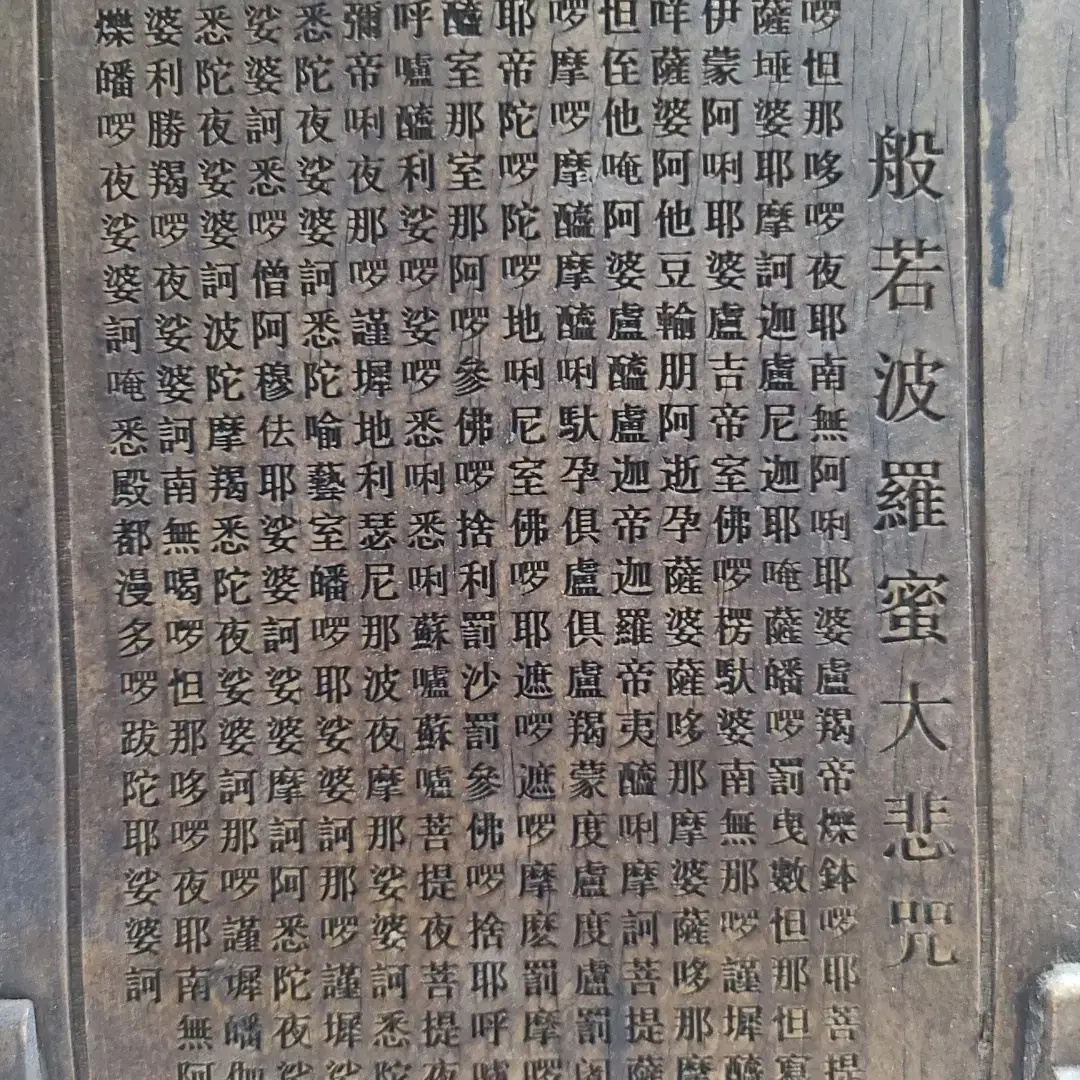 般若波羅蜜大悲咒
啰怛那哆啰夜耶南無阿唎耶婆盧羯帝爍鉢啰耶菩提
薩埵婆耶摩訶迦盧尼迦耶唵薩皤啰罰曳數怛那怛寫
伊蒙阿唎耶婆盧吉帝室佛啰楞馱婆南無那啰謹墀醯
咩薩婆阿他豆輸朋阿逝孕薩婆薩哆那摩婆薩哆那摩
怛侄他唵阿婆盧醯盧迦帝迦羅帝夷醯唎摩訶菩提薩
啰摩啰摩醯摩醯唎馱孕俱盧俱盧羯蒙度盧度盧罰闍
耶帝陀啰陀啰地唎尼室佛啰耶遮啰遮啰摩麼罰摩啰
醯室那室那阿啰參佛啰捨利罰沙罰參佛啰捨耶呼嚧
呼嚧醯利娑啰娑啰悉唎悉唎蘇嚧蘇嚧菩提夜菩提夜
彌帝唎夜那啰謹墀地利瑟尼那波夜摩那娑婆訶悉陀
悉陀夜娑婆訶悉陀喻藝室皤啰耶娑婆訶那啰謹墀娑
娑婆訶悉啰僧阿穆佉耶娑婆訶娑婆摩訶阿悉陀夜娑
悉陀夜娑婆訶波陀摩羯悉陀夜娑婆訶那啰謹墀皤伽
婆利勝羯啰夜娑婆訶南無喝啰怛那哆啰夜耶南無阿
爍皤啰夜娑婆訶唵悉殿都漫多啰跋陀耶娑婆訶